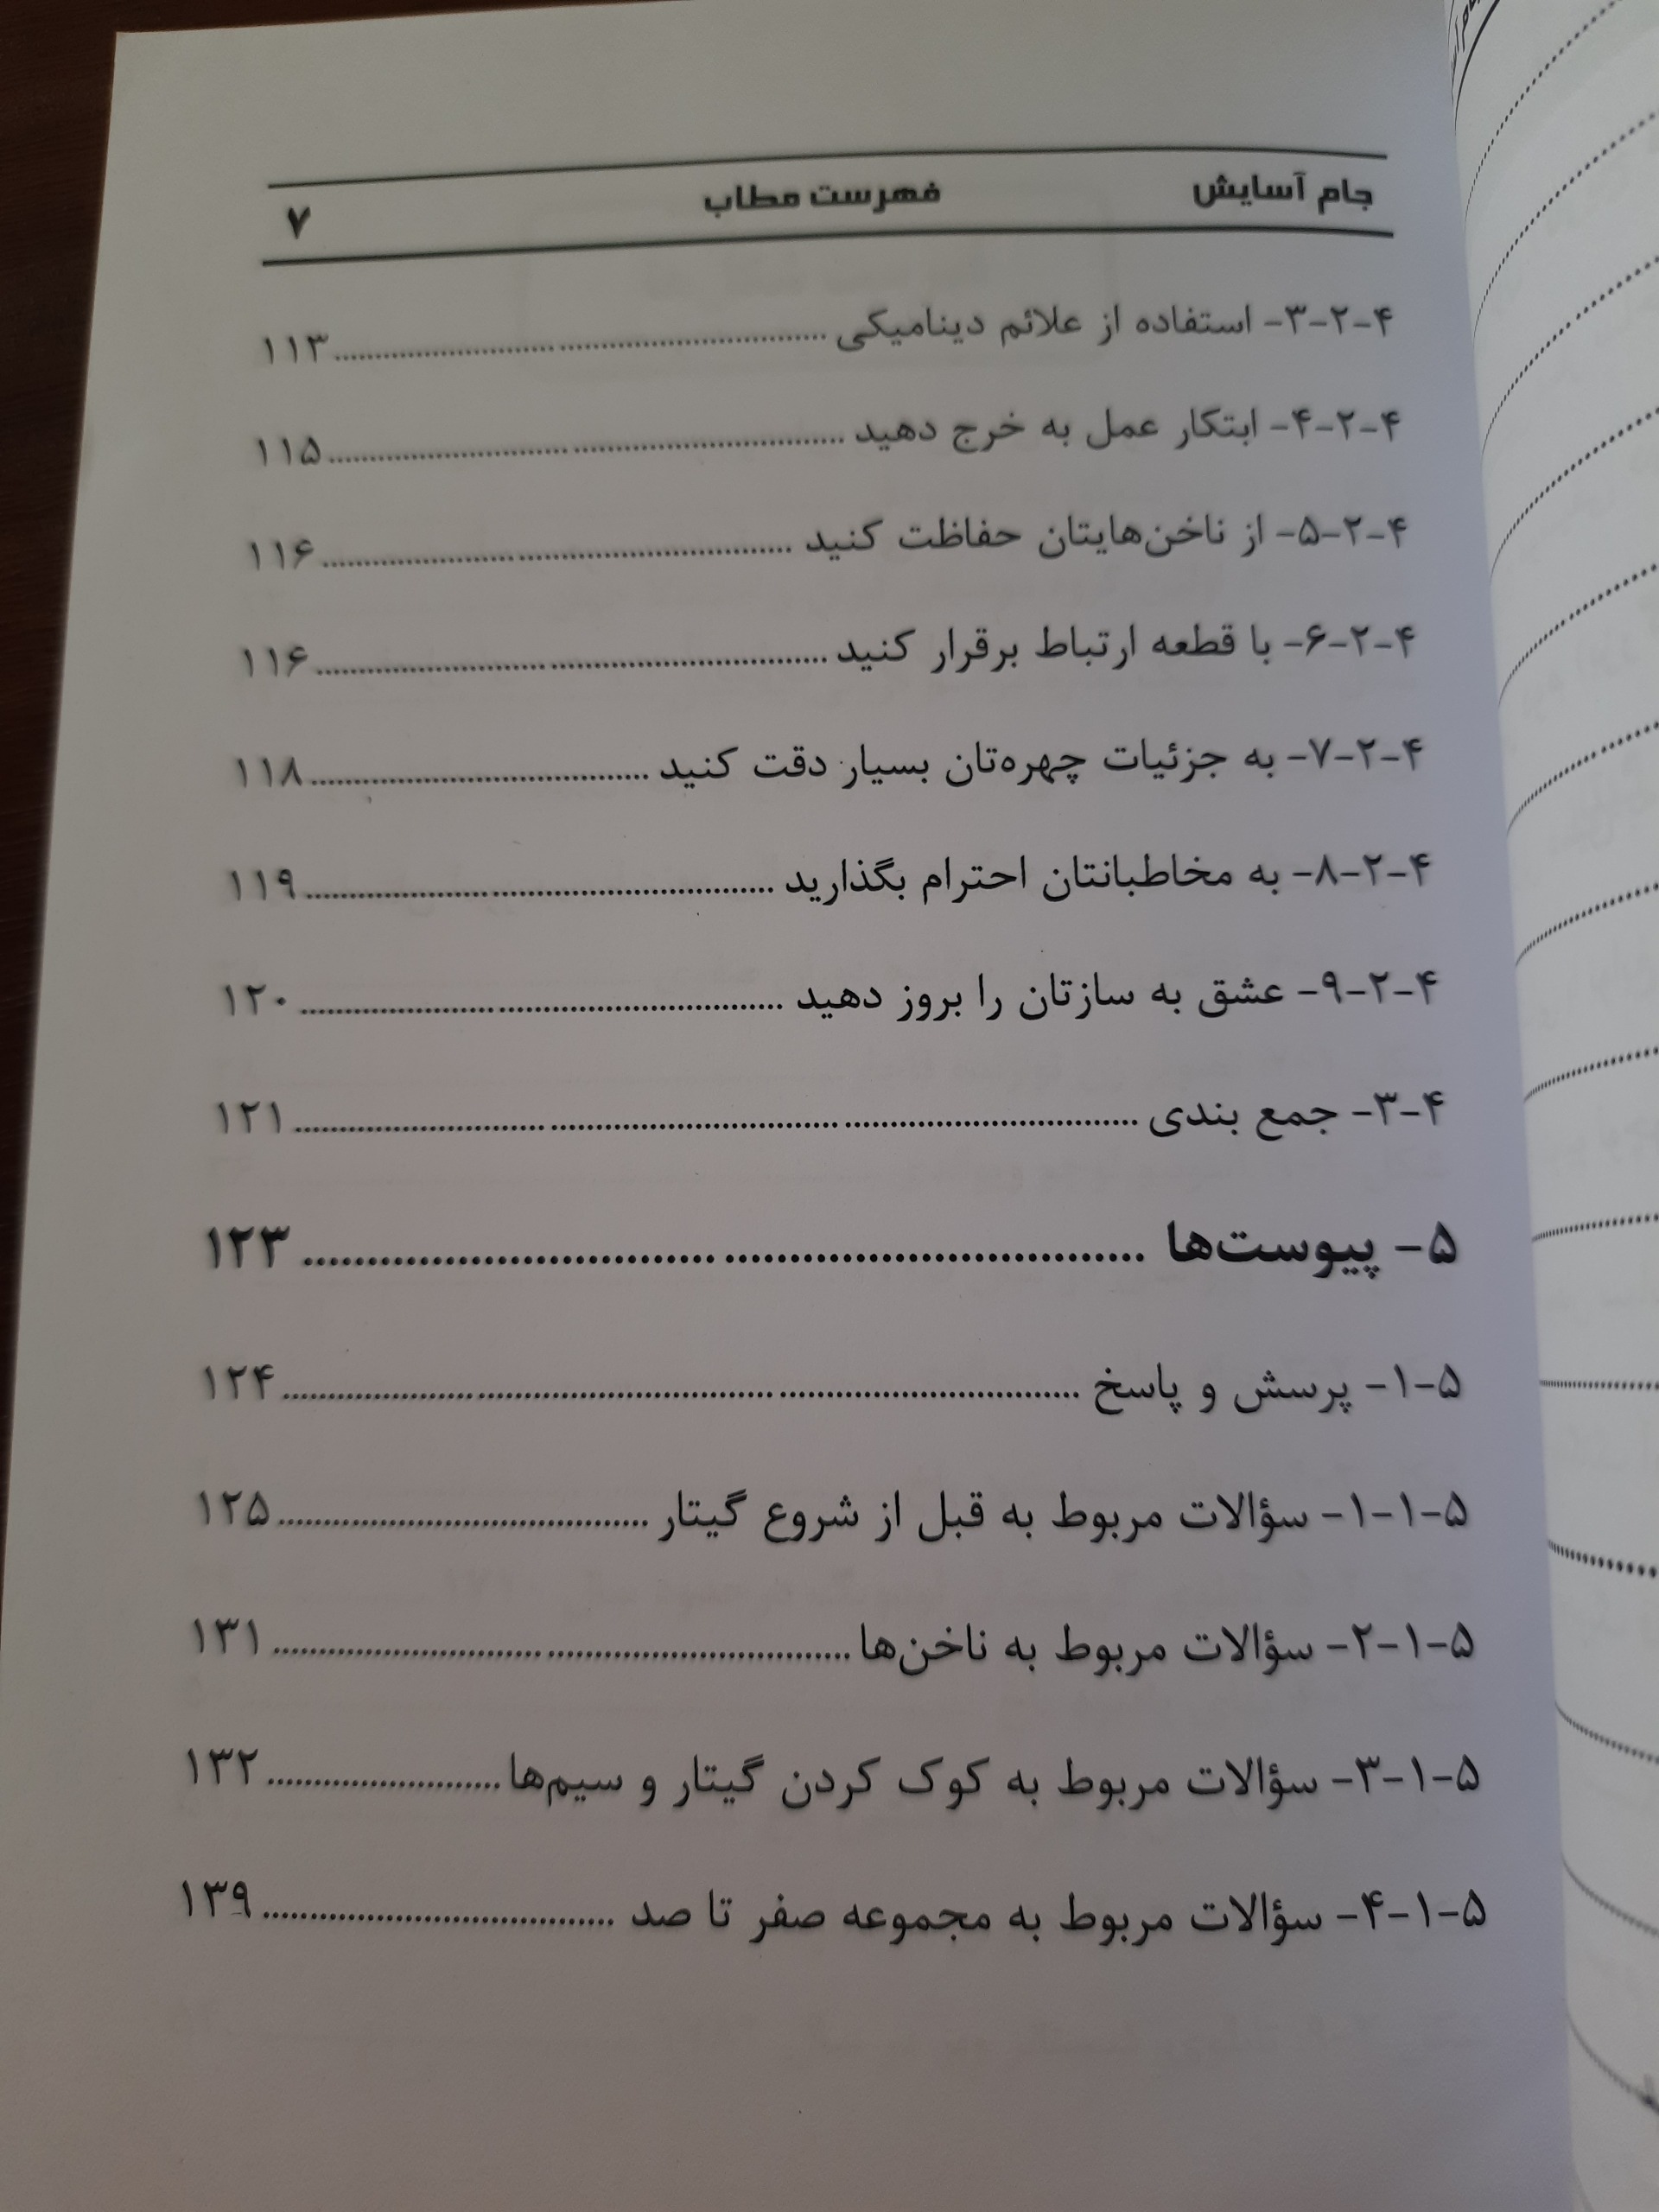 جام آسایش فهرست مطاب ۷
۴-۲-۳- استفاده از علائم دینامیکی ........ ۱۱۳
۴-۲-۴- ابتکار عمل به خرج دهید ........ ۱۱۵
۴-۲-۵- از ناخن‌هایتان حفاظت کنید ........ ۱۱۶
۴-۲-۶- با قطعه ارتباط برقرار کنید ........ ۱۱۶
۴-۲-۷- به جزئیات چهره‌تان بسیار دقت کنید ........ ۱۱۸
۴-۲-۸- به مخاطبانتان احترام بگذارید ........ ۱۱۹
۴-۲-۹- عشق به سازتان را بروز دهید ........ ۱۲۰
۴-۳- جمع بندی ........ ۱۲۱
۵- پیوست‌ها ........ ۱۲۳
۵-۱- پرسش و پاسخ ........ ۱۲۴
۵-۱-۱- سؤالات مربوط به قبل از شروع گیتار ........ ۱۲۵
۵-۱-۲- سؤالات مربوط به ناخن‌ها ........ ۱۳۱
۵-۱-۳- سؤالات مربوط به کوک کردن گیتار و سیم‌ها ........ ۱۳۲
۵-۱-۴- سؤالات مربوط به مجموعه صفر تا صد ........ ۱۳۹